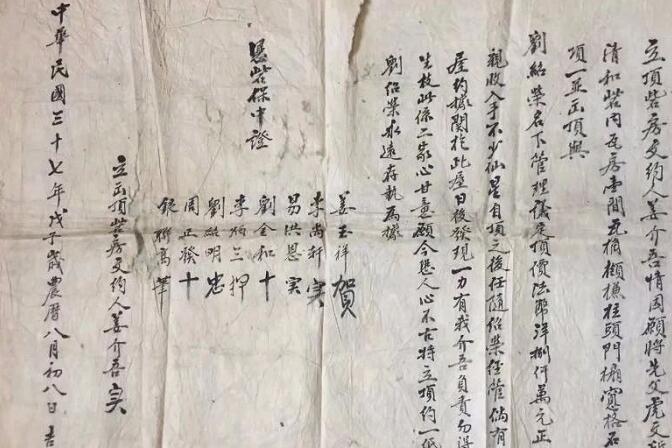 立頂砦房文約人姜介吾情因願將先父虎文
清和砦内瓦房壹間瓦桷檩柱頭門榻窻格石
項一並出頂與
劉紹榮名下管理議定頂價法幣洋捌仟萬元正
親收入手不少仙星自頂之後任隨紹榮經管倘有
屋約據關扵此屋日後發現一力有我介吾負責勿得
生枝此係二家心甘意願今恐人心不古特立頂約一紙
劉紹榮永遠存執為據
憑砦保中證
姜玉祥 賀
李尚軒 実
易洪恩 実
劉金和 十
李炳三 押
劉啟明 忠
周正發 十
銀聯高 筆
立出頂砦房文約人姜介吾 実
中華民國三十七年戊子歲農曆八月初八日 吉